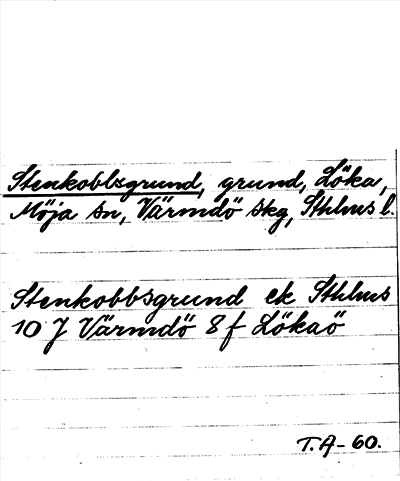 Stenkobbsgrund, grund, Löka,
Möja sn, Värmdö skg, Sthlms l.
Stenkobbsgrund ek Sthlms
10 J Värmdö 8 f Lökaö
T.A-60.